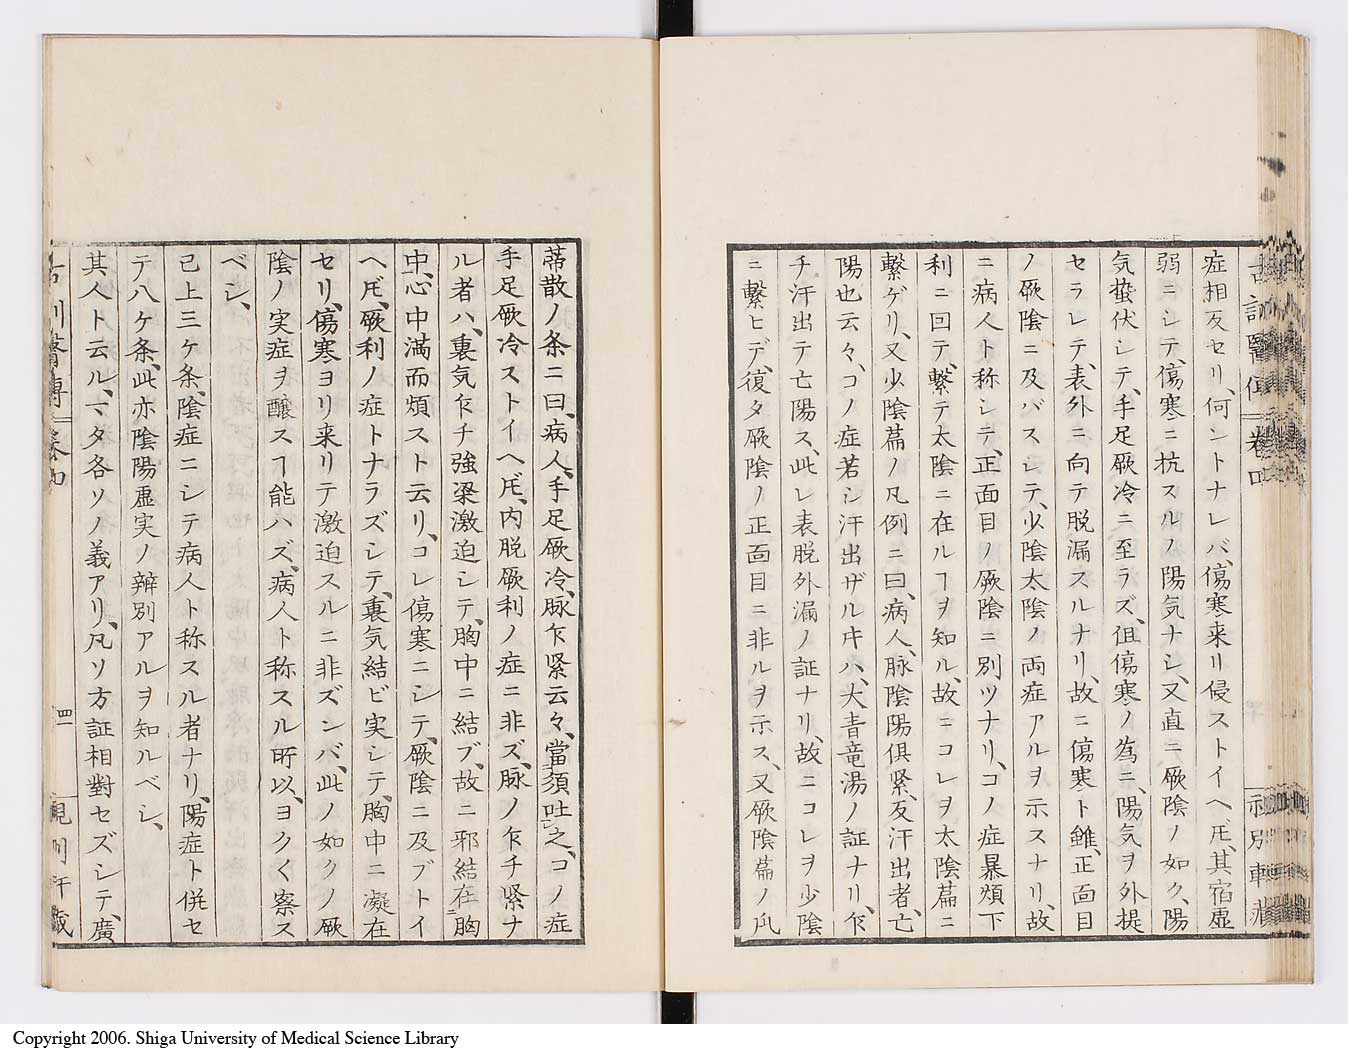 症相反セリ、何ントナレバ、傷寒来リ侵ストイヘ𪜈、其宿虚
弱ニシテ、傷寒ニ抗スルノ陽気ナシ、又直ニ厥陰ノ如ク、陽
気蟄伏シテ、手足厥冷ニ至ラズ、但傷寒ノ為ニ、陽気ヲ外提
セラレテ、表外ニ向テ脱漏スルナリ、故ニ傷寒ト雖、正面目
ノ厥陰ニ及バスシテ、少陰太陰ノ両症アルヲ示スナリ、故
ニ病人ト称シテ、正面目ノ厥陰ニ別ツナリ、コノ症暴煩下
利ニ回テ、繋テ太陰ニ在ルヿヲ知ル、故ニコレヲ太陰篇ニ
繋ゲリ、又少陰篇ノ凡例ニ曰、病人、脉陰陽倶緊、反汗出者、亡
陽也云々、コノ症若シ汗出ザル𪜀ハ、大青竜湯ノ証ナリ、乍
チ汗出テ亡陽ス、此レ表脱外漏ノ証ナリ、故ニコレヲ少陰
ニ繋ヒデ、復タ厥陰ノ正面目ニ非ルヲ示ス、又厥陰篇ノ凡
蔕散ノ条ニ曰、病人、手足厥冷、脉乍緊云々、當須吐之、コノ症
手足厥冷ストイヘ𪜈、内脱厥利ノ症ニ非ズ、脉ノ乍チ緊ナ
ル者ハ、裏気乍チ強梁激迫シテ、胸中ニ結ブ、故ニ邪結在胸
中、心中満而煩スト云リ、コレ傷寒ニシテ、厥陰ニ及ブトイ
ヘ𪜈、厥利ノ症トナラズシテ、裏気結ビ実シテ、胸中ニ凝在
セリ、傷寒ヨリ来リテ激迫スルニ非ズンバ、此ノ如クノ厥
陰ノ実症ヲ醸スヿ能ハズ、病人ト称スル所以、ヨクく察ス
ベシ、
已上三ケ条、陰症ニシテ病人ト称スル者ナリ、陽症ト併セ
テ八ケ条、此亦陰陽虚実ノ辨別アルヲ知ルベシ、
其人ト云ル、マタ各ソノ義アリ、凡ソ方証相對セズシテ、廣
四
Copyright 2006. Shiga University of Medical Science Library